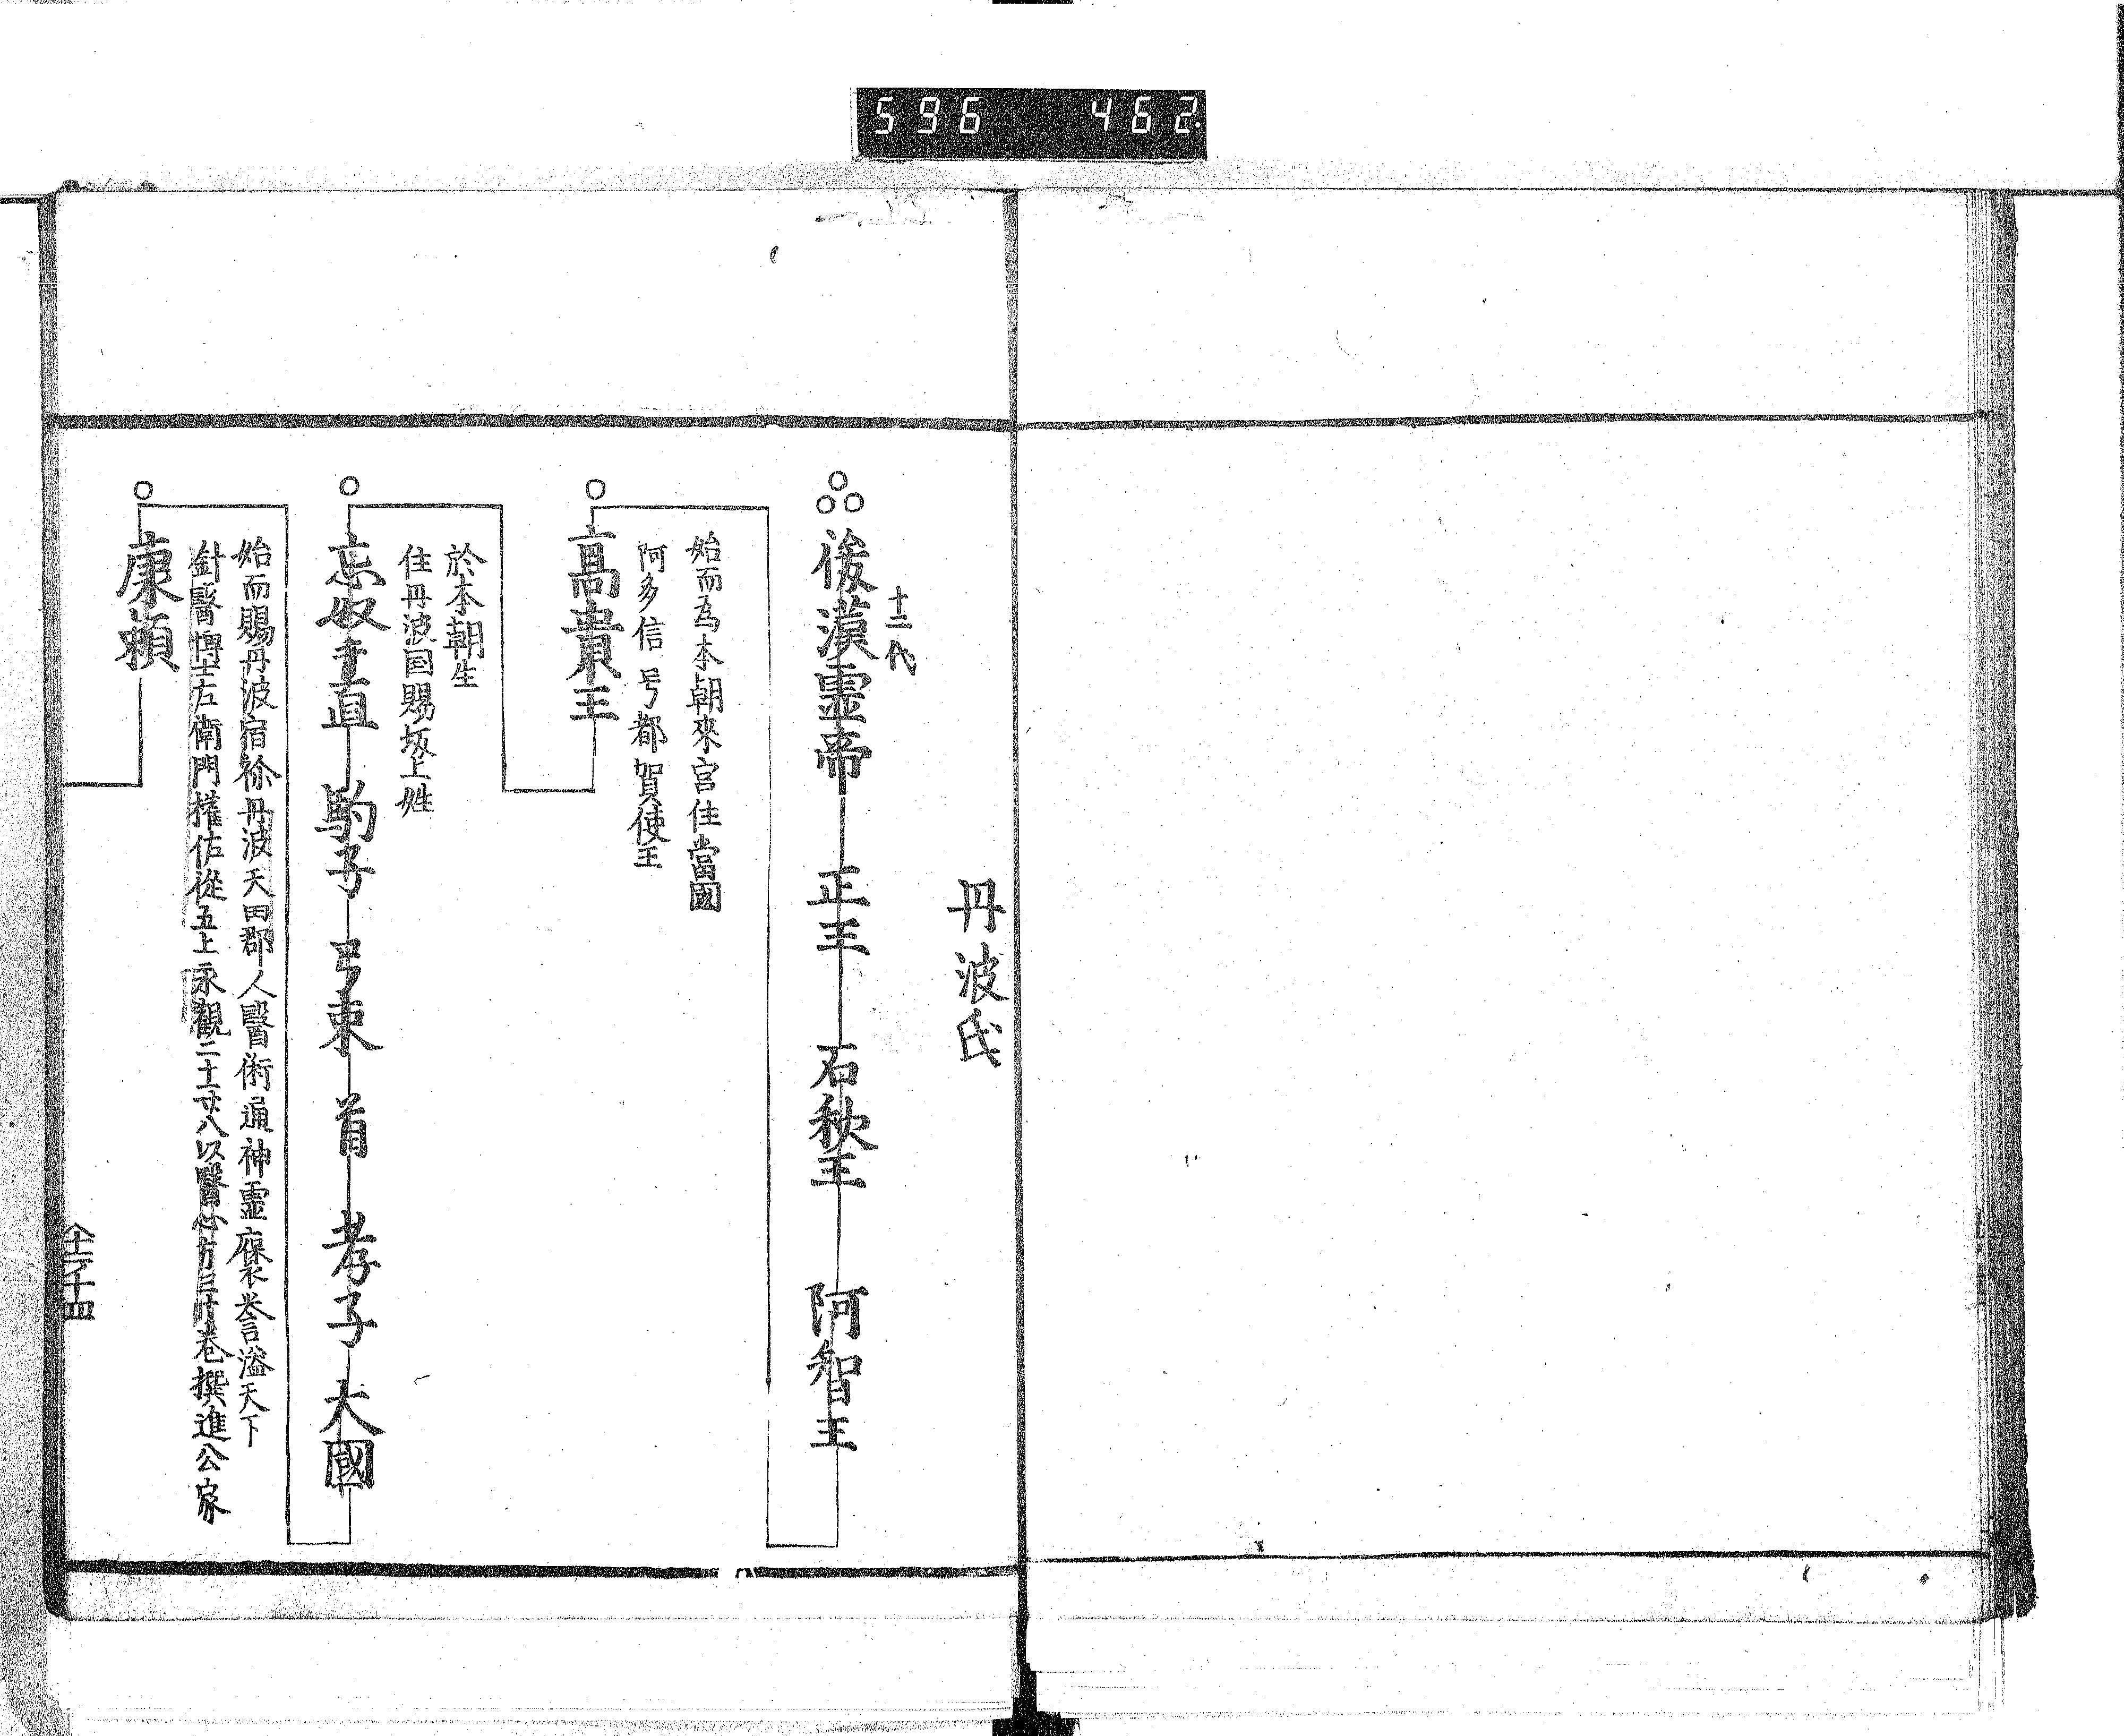 596 462
丹波氏
十二代
後漢霊帝 正王 石秋王 阿智王
始而為本朝來宮住當國
阿多信号都賀使王
高貴王
於本朝生
住丹波国賜坂上姓
忘奴直 駒子 弓束 首 孝子 大國
始而賜丹波宿祢丹波天田郡人醫術通神霊褒誉溢天下
針醫博士左衛門権佐從五上永觀二十一廿八以醫心方三十卷撰進公家
康頼
十四